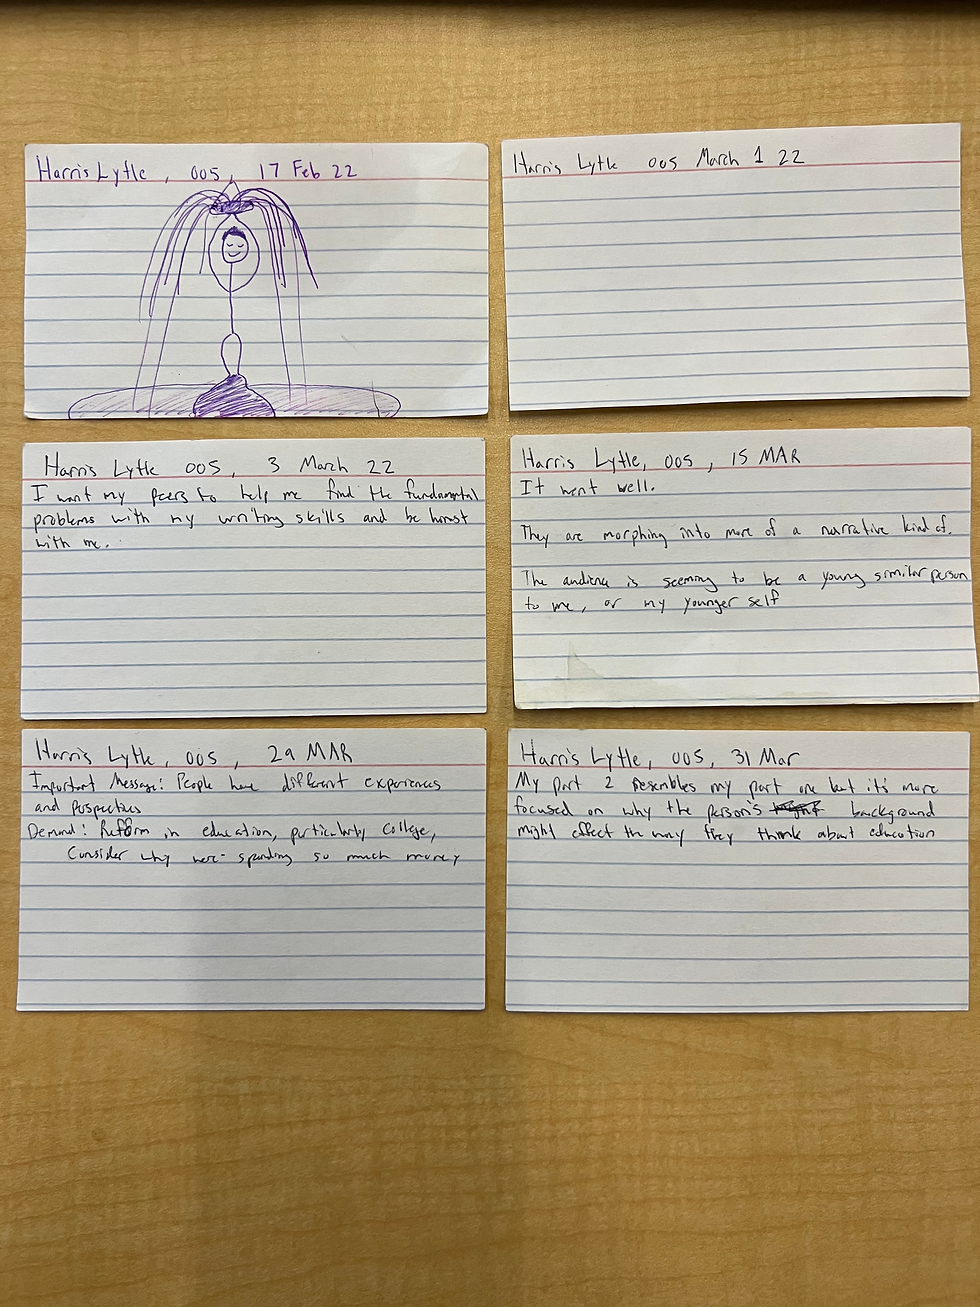 Harris Lytle , 005, 17 Feb 22
Harris Lytle 005 March 1 22
Harris Lytle 005, 3 March 22
I want my peers to help me find the fundamental
problems with my writing skills and be honest
with me.
Harris Lytle, 005, 15 MAR
It went well.
They are morphing into more of a narrative kind of.
The audience is seeming to be a young similar person
to me, or my younger self
Harris Lytle, 005, 29 MAR
Important Message: People have different experiences
and perspectives
Demand: Reform in education, particularly college,
Consider why we're spending so much money
Harris Lytle, 005, 31 Mar
My part 2 resembles my part one but it's more
focused on why the person's background
might effect the way they think about education